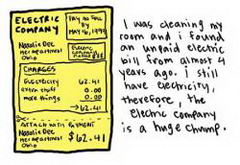 ELECTRIC
COMPANY
PAY NO TELL
BY
MAY 16, 1998
Natalie Dee
Ohio
CHARGES
ELECTRICITY 62.41
extra stuff 0.00
more things 0.00
→ 62.41
ATTACH WITH PAYMENT
Natalie Dee
Ohio
$62.41
I was cleaning my
room and i found
an unpaid electric
bill from almost 4
years ago. i still
have electricity,
therefore, the
electric company
is a huge chump.